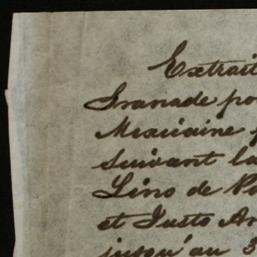 Extrait
Granade po
Mexicaine p
suivant la
Lino de Po
et Justo Ar
jusqu'au 3